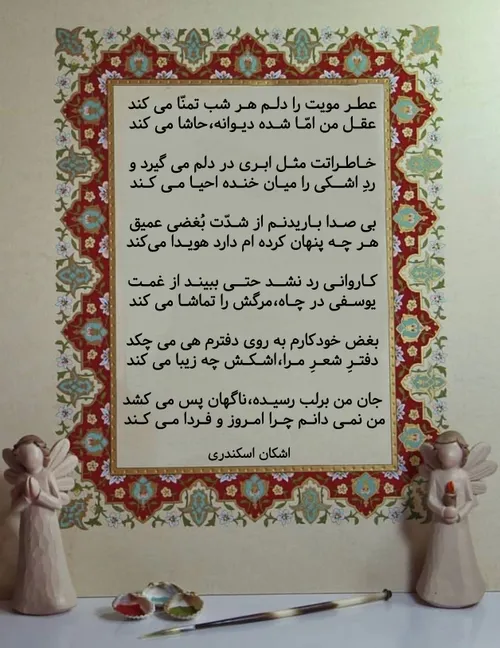 عطر مویت را دلم هر شب تمنّا می کند
عقل من امّا شده دیوانه،حاشا می کند
خاطراتت مثل ابری در دلم می گیرد و
ردِ اشکی را میان خنده احیا می کند
بی صدا باریدنم از شدّت بُغضی عمیق
هر چه پنهان کرده ام دارد هویدا می‌کند
کاروانی رد نشد حتی ببیند از غمت
یوسفی در چاه،مرگش را تماشا می کند
بغض خودکارم به روی دفترم هی می چکد
دفترِ شعرِ مرا،اشکش چه زیبا می کند
جان من برلب رسیده،ناگهان پس می کشد
من نمی دانم چرا امروز و فردا می کند
اشکان اسکندری